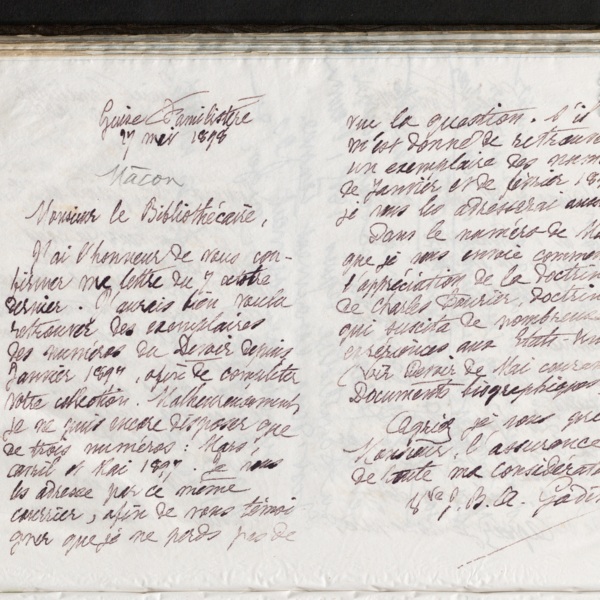 Guise Familistère
27 mai 1898
Macon
Monsieur le Bibliothécaire,
J'ai l'honneur de vous con-
firmer ma lettre du 7 octobre
dernier. J'aurais bien voulu
retrouver des exemplaires
des numéros du Devoir depuis
Janvier 1897, afin de compléter
votre collection. Malheureusement
je ne puis encore disposer que
de trois numéros : Mars,
avril et Mai 1897. Je vous
les adresse par ce même
courrier, afin de vous témoi
gner que je ne perds pas de
vue la question. S'il
m'est donné de retrouver
un exemplaire des num
de Janvier et de février 18
je vous les adresserai
Dans le numéro de Ma
que je vous envoie commen
l'appréciation de la doctrin
de Charles Fourier, doctrin
qui suscita de nombreuse
expériences aux Etats-Un
(voir Devoir de Mai couran
Documents biographiques
Agréez je vous prie
Monsieur, l'assurance
de toute ma considérat
Vve J. B. A. Godin